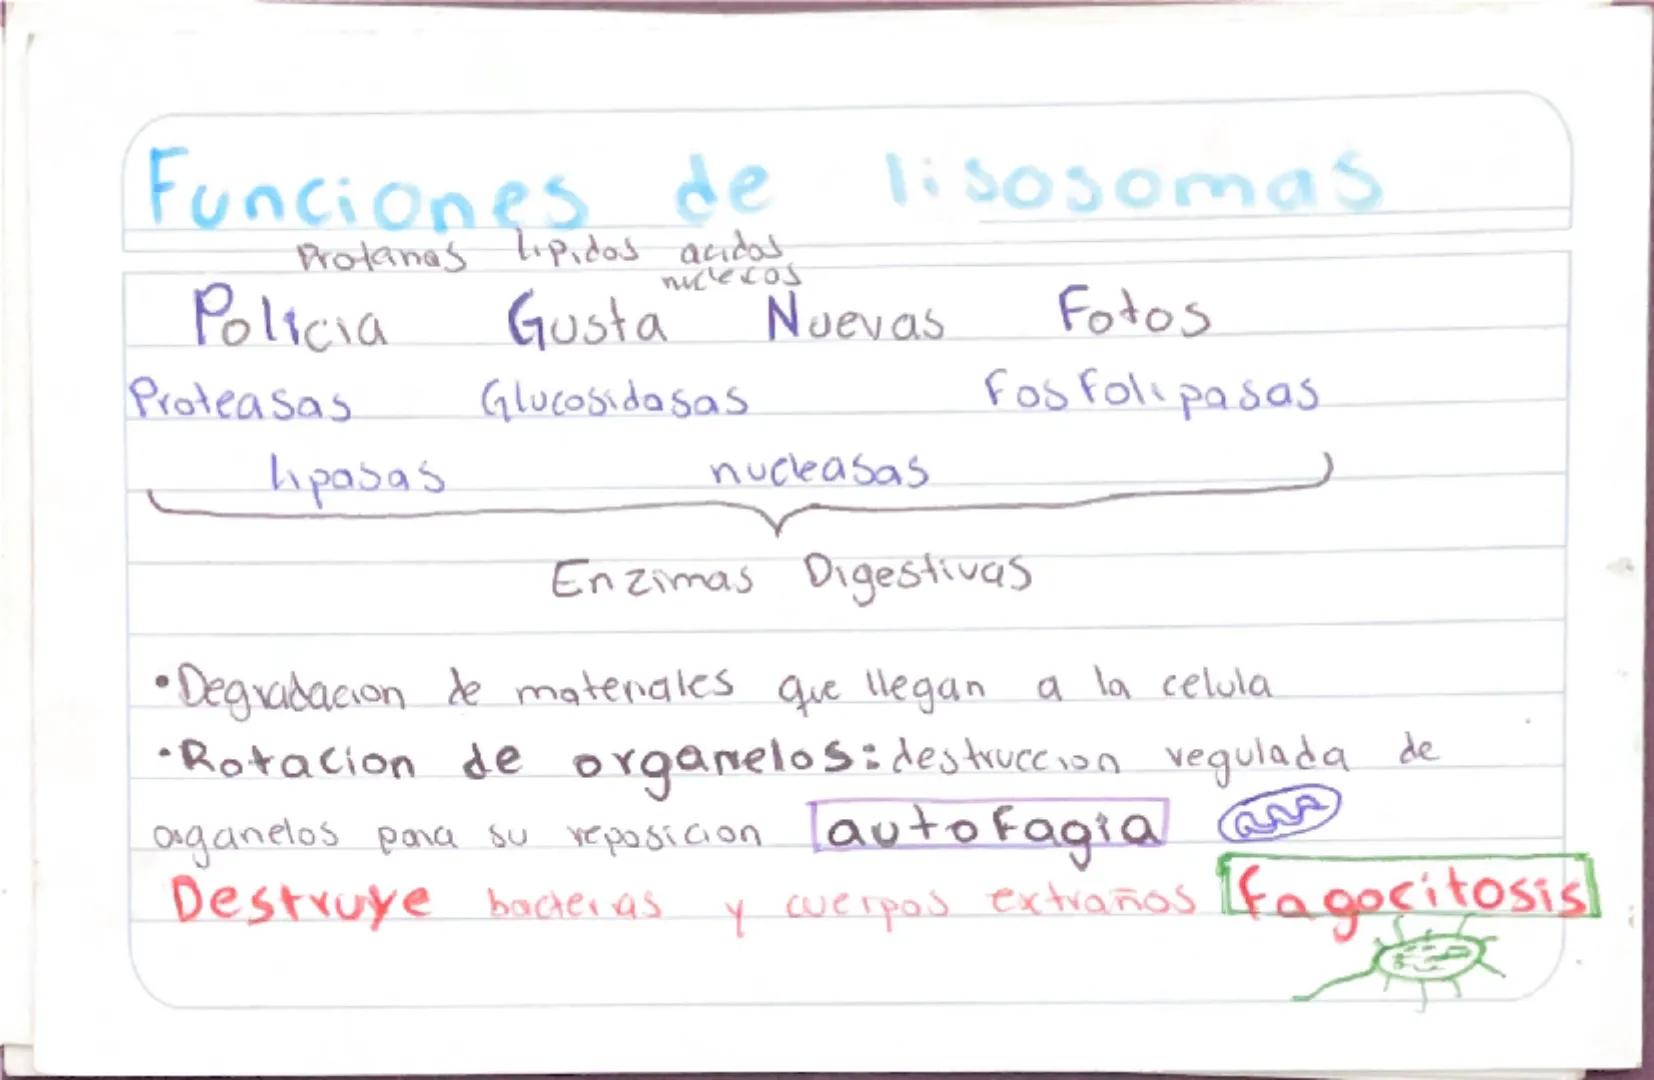 Funciones de lisosomas
Proteinas lipidos acidos
nucleicos
Policia Gusta Nuevas Fotos
Proteasas Glucosidasas Fosfolipasas
lipasas nucleasas
Enzimas Digestivas
• Degradacion de materiales que llegan a la celula
• Rotacion de organelos: destruccion regulada de
organelos para su reposicion autofagia
Destruye bacterias y cuerpos extraños fagocitosis